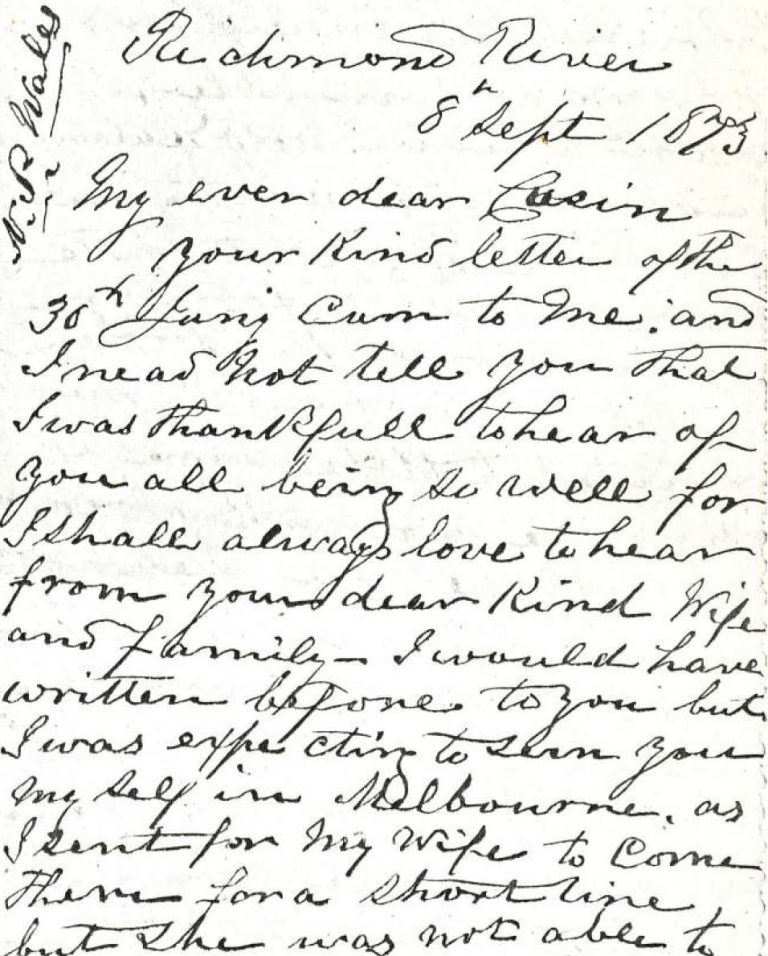 N. S. Wales
Richmond River
8th Sept 1873
My ever dear Cusin
your Kind letter of the
30th Juny Cum to Me. and
I nead Not tell you that
I was thankfull to hear of
you all being so well for
I shall always love to hear
from your dear Kind Wife
and family - I would have
written before to you but
I was expecting to seen you
my self in Melbourne. as
I sent for My Wife to Come
there for a short time
but she was not able to